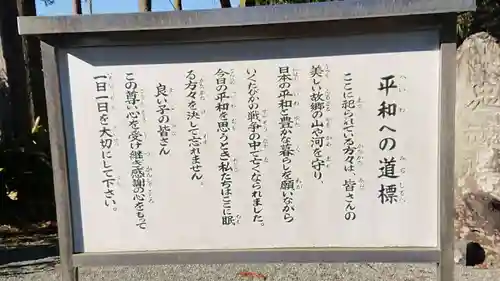 平和への道標
ここに祀られている方々は、皆さんの
美しい故郷の山や河を守り、
日本の平和と豊かな暮らしを願いながら
いくたびかの戦争の中で亡くなられました。
今日の平和を思うとき、私たちはここに眠
る方々を決して忘れません。
良い子の皆さん
この尊い心を受け継ぎ感謝の心をもって
一日一日をご大切にして下さい。